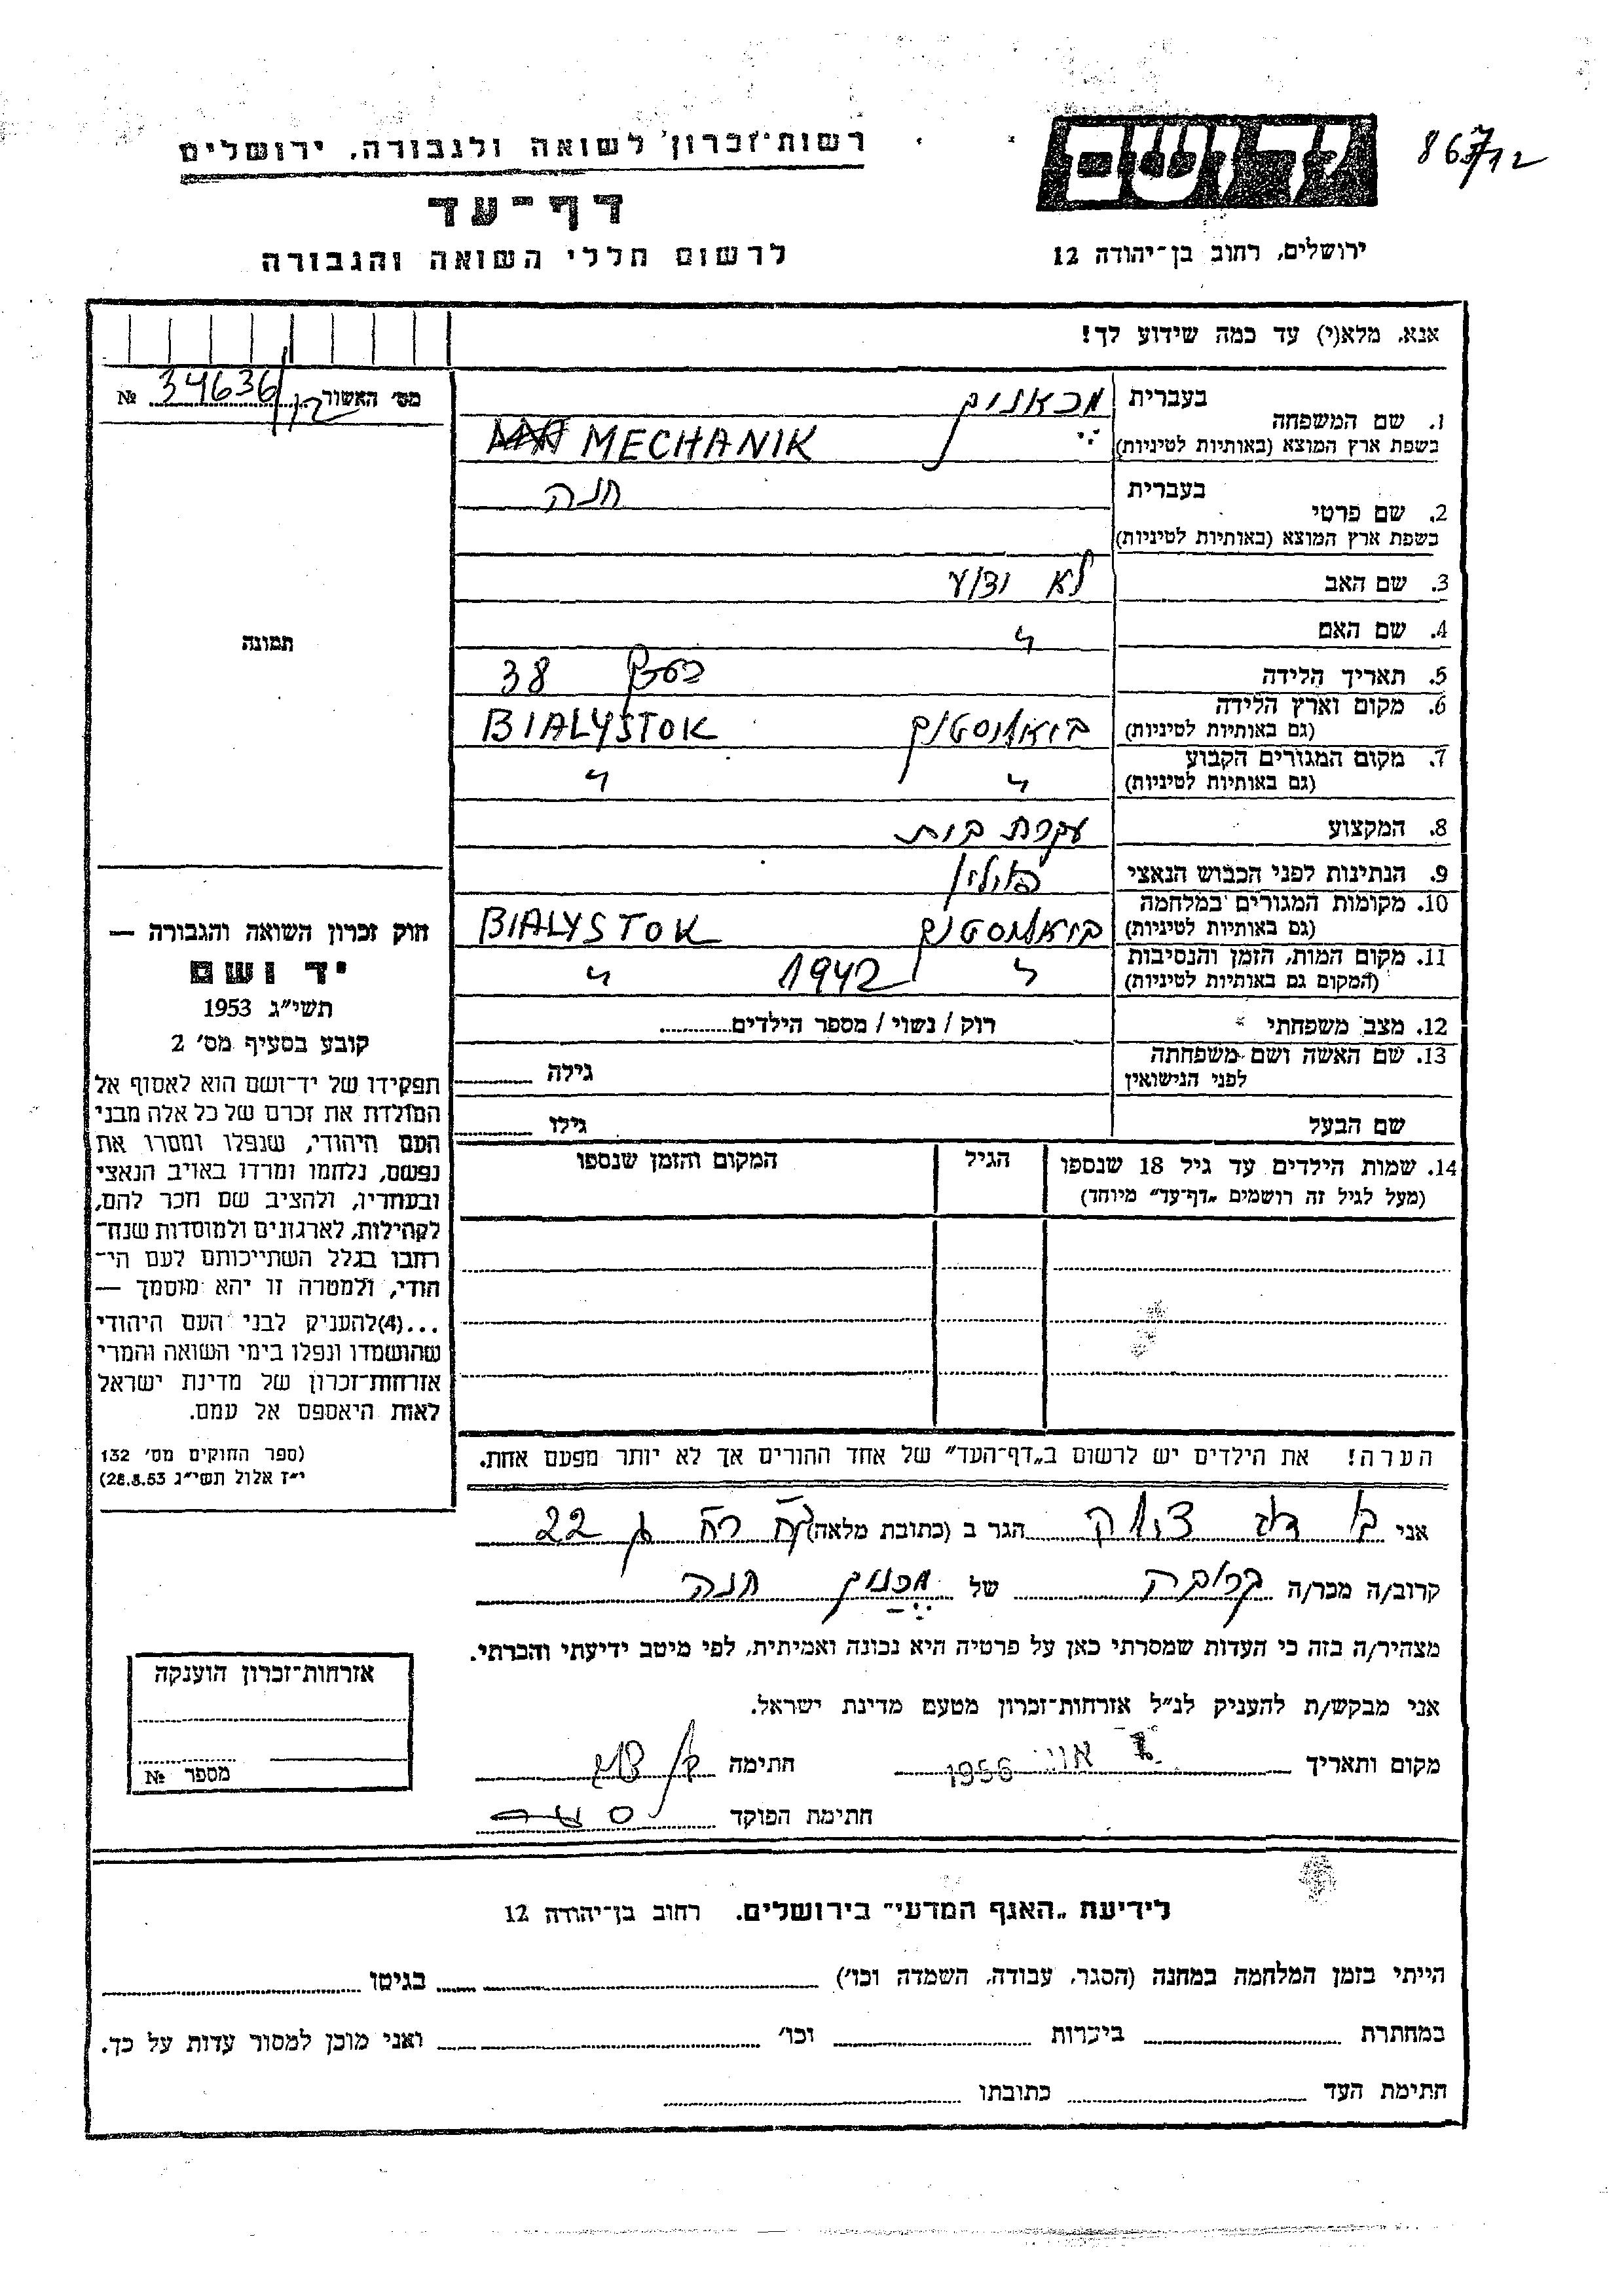 867/12
רשות־זכרון לשואה ולגבורה, ירושלים
דף־עד
לרשום חללי השואה והגבורה
ירושלים, רחוב בן־יהודה 12
אנא, מלא(י) עד כמה שידוע לך!
מס׳ האשור № 34636
1. שם המשפחה
בעברית
בשפת ארץ המוצא (באותיות לטיניות) MECHANIK
2. שם פרטי
בעברית חנה
בשפת ארץ המוצא (באותיות לטיניות)
3. שם האב לא ידוע
4. שם האם "
5. תאריך הלידה בערך 38
6. מקום וארץ הלידה
(גם באותיות לטיניות) ביאליסטוק BIALYSTOK
7. מקום המגורים הקבוע
(גם באותיות לטיניות) " "
8. המקצוע עקרת בית
9. הנתינות לפני הכבוש הנאצי פולין
10. מקומות המגורים במלחמה
(גם באותיות לטיניות) ביאליסטוק BIALYSTOK
11. מקום המות, הזמן והנסיבות
(המקום גם באותיות לטיניות) " 1942 "
12. מצב משפחתי רוק / נשוי / מספר הילדים
13. שם האשה ושם משפחתה
לפני הנישואין גילה
שם הבעל גילו
14. שמות הילדים עד גיל 18 שנספו הגיל המקום והזמן שנספו
(מעל לגיל זה רושמים „דף־עד״ מיוחד)
תמונה
חוק זכרון השואה והגבורה —
יד ושם
תשי״ג 1953
קובע בסעיף מס׳ 2
תפקידו של יד־ושם הוא לאסוף אל
המולדת את זכרם של כל אלה מבני
העם היהודי, שנפלו ומסרו את
נפשם, נלחמו ומרדו באויב הנאצי
ובעוזריו, ולהציב שם וזכר להם,
לקהילות, לארגונים ולמוסדות שנח־
רבו בגלל השתייכותם לעם הי־
הודי, ולמטרה זו יהא מוסמך —
...(4)להעניק לבני העם היהודי
שהושמדו ונפלו בימי השואה והמרי
אזרחות־זכרון של מדינת ישראל
לאות היאספם אל עמם.
(ספר החוקים מס׳ 132
י״ז אלול תשי״ג 28.8.53)
הערה! את הילדים יש לרשום ב„דף־העד״ של אחד ההורים אך לא יותר מפעם אחת.
אני הגר ב (כתובת מלאה) 22
קרוב/ה מכר/ה קרובה של חנה
מצהיר/ה בזה כי העדות שמסרתי כאן על פרטיה היא נכונה ואמיתית, לפי מיטב ידיעתי והכרתי.
אני מבקש/ת להעניק לנ״ל אזרחות־זכרון מטעם מדינת ישראל.
מקום ותאריך 1956 חתימה
חתימת הפוקד
אזרחות־זכרון הוענקה
מספר №
לידיעת „האגף המדעי״ בירושלים, רחוב בן־יהודה 12
הייתי בזמן המלחמה במחנה (הסגר, עבודה, השמדה וכו׳) בגיטו
במחתרת ביערות וכו׳ ואני מוכן למסור עדות על כך.
חתימת העד כתובתו